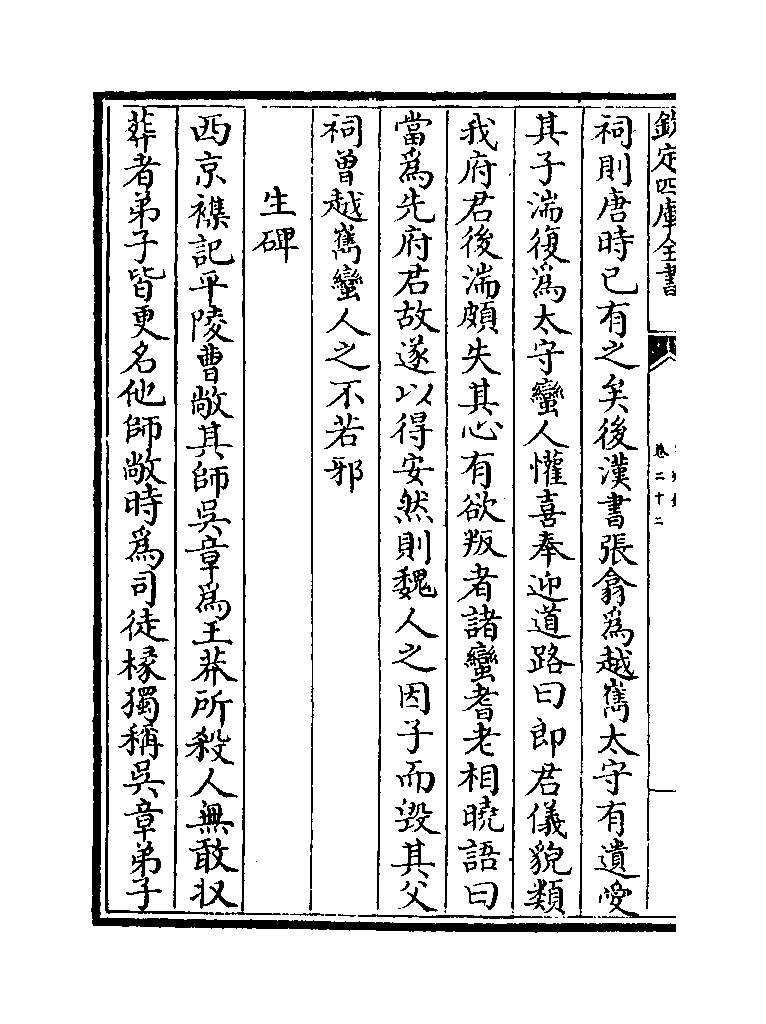 欽定四庫全書
卷二十二
祠則唐時已有之矣後漢書張翕為越嶲太守有遺愛
其子湍復為太守蠻人懽喜奉迎道路曰郎君儀貌類
我府君後湍頗失其心有欲叛者諸蠻耆老相曉語曰
當為先府君故遂以得安然則魏人之因子而毀其父
祠曾越嶲蠻人之不若邪
生碑
西京襍記平陵曹敞其師吳章為王莽所殺人無敢收
葬者弟子皆更名他師敞時為司徒椽獨稱吳章弟子